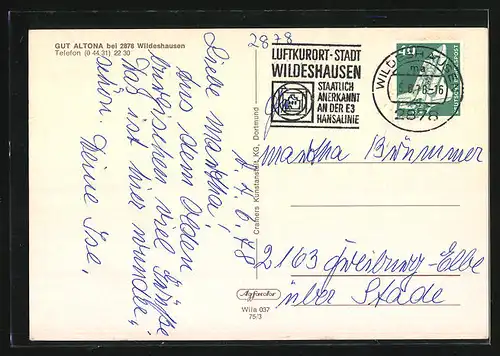 GUT ALTONA bei 2878 Wildeshausen
Telefon (0 44.31) 22 30
2878
LUFTKURORT-STADT
WILDESHAUSEN
STAATLICH
ANERKANNT
AN DER E3
HANSALINIE
2878
DEUTSCHE BUNDESPOST
Cramers Kunstanstalt KG, Dortmund
4. 6. 78
Liebe Martha!
Aus dem Olden-
burgischen viel Grüße
Das ist hier wunder-
schön.
Deine Ise.
Martha Brümmer
2163 Freiburg Elbe
über Stade
Agfacolor
Wila 037
75/3